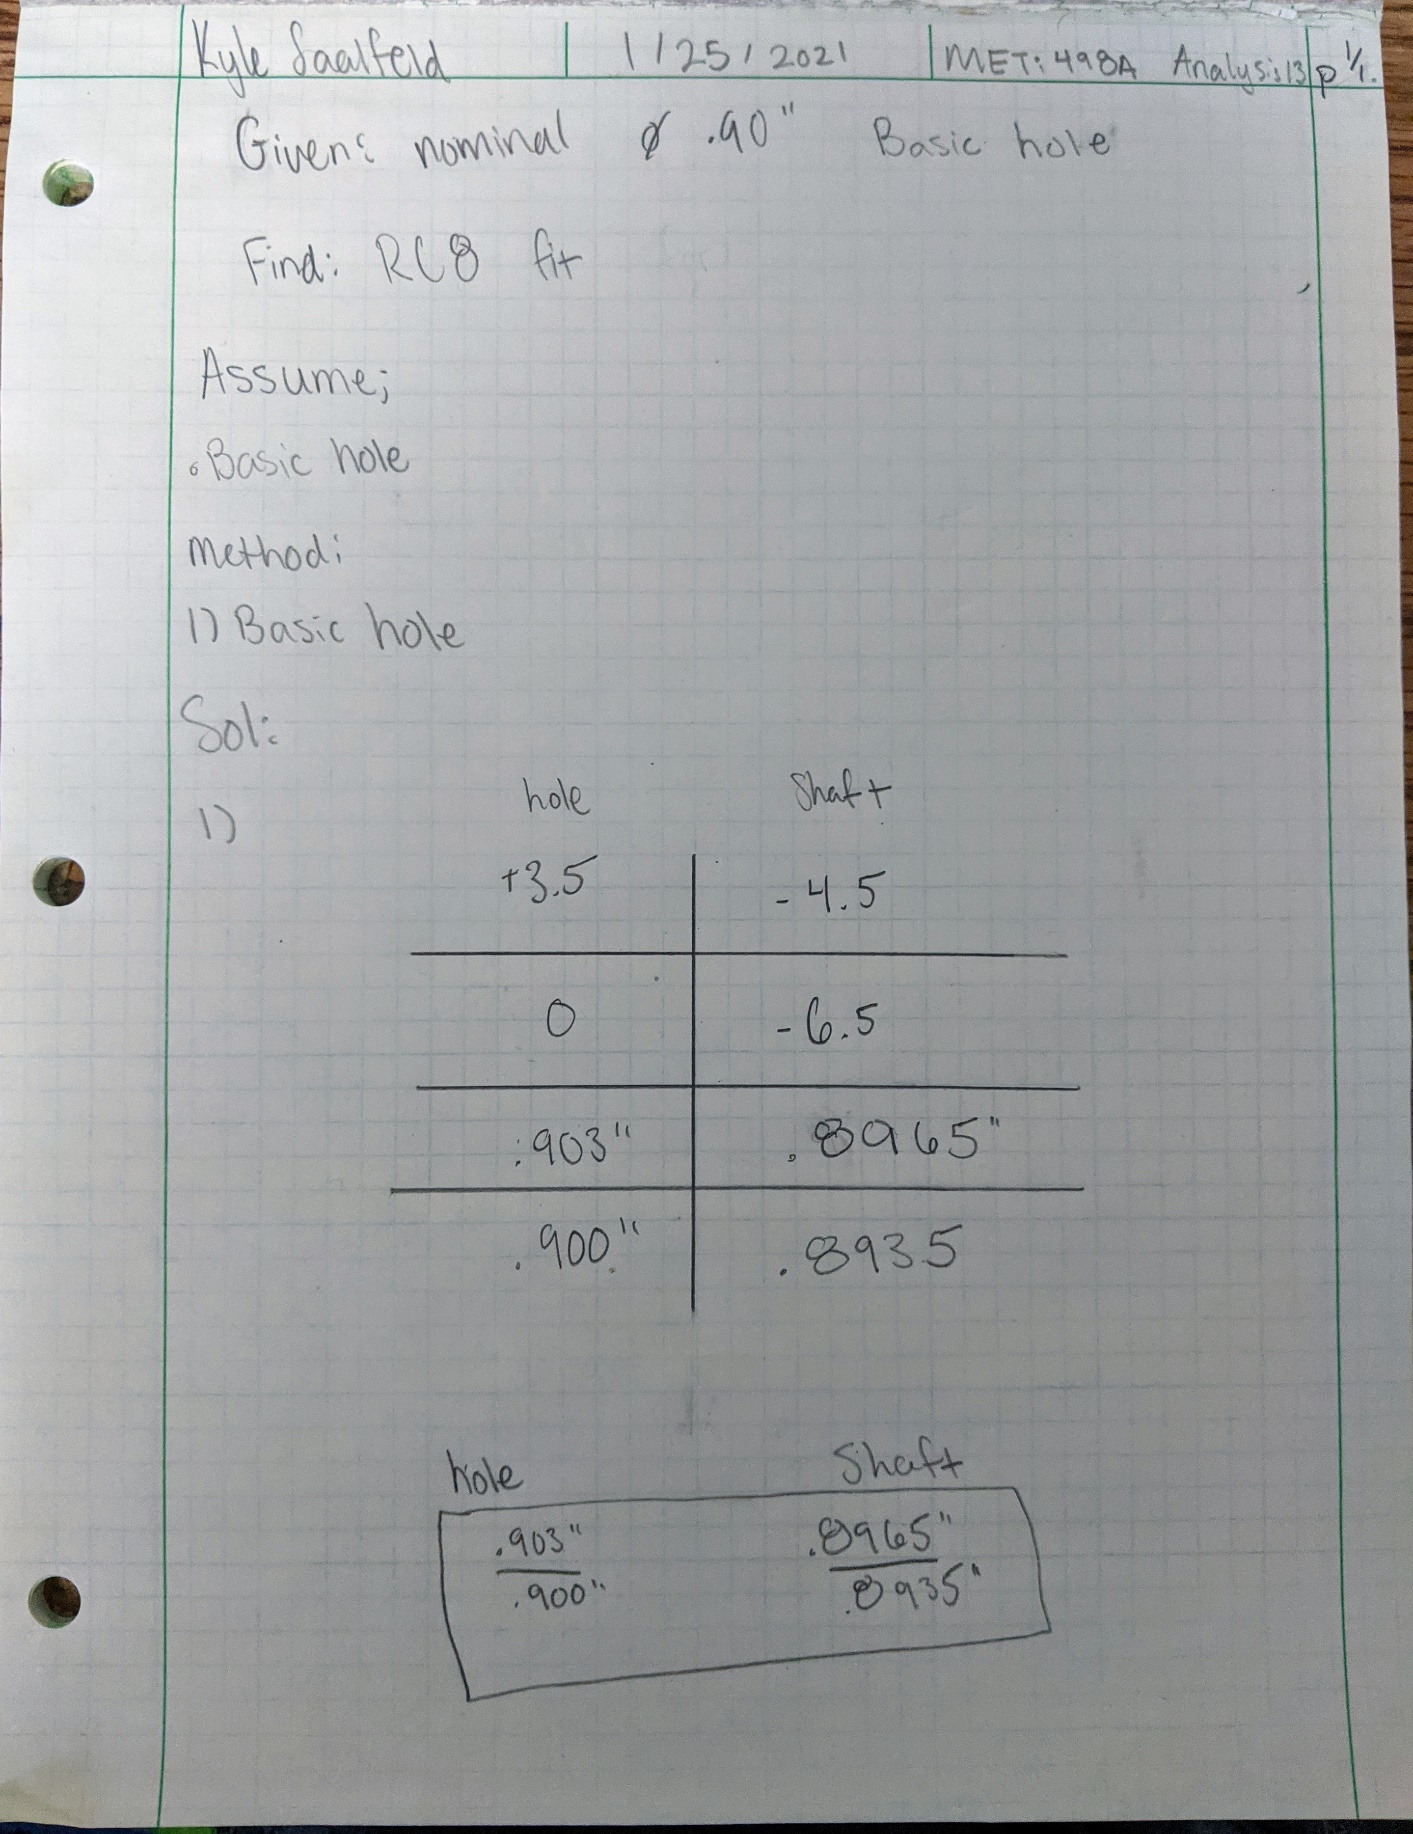 Kyle Saalfeld 1/25/2021 MET: 498A Analysis 13 p 1/1.
Given: nominal ⌀ .90" Basic hole
Find: RC8 fit
Assume;
• Basic hole
Method:
1) Basic hole
Sol:
hole Shaft
1)
+3.5 -4.5
0 -6.5
.903" .8965"
.900" .8935
hole Shaft
.903" .8965"
.900" .8935"